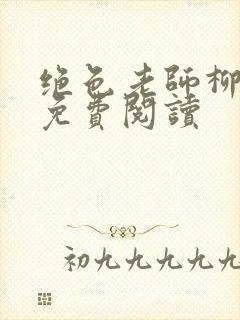 绝色老师柳
免費閱讀
初九九九九九